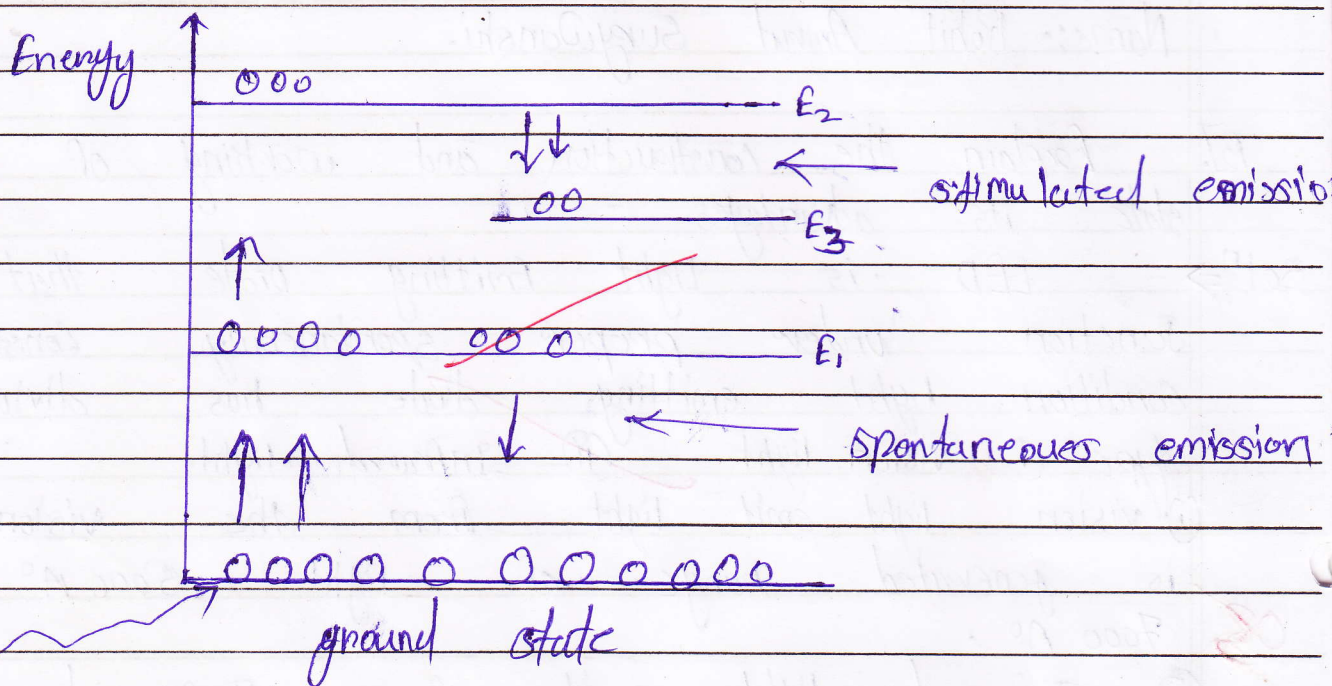 Energy
E2
stimulated emissio
E3
E1
spontaneous emission
ground state